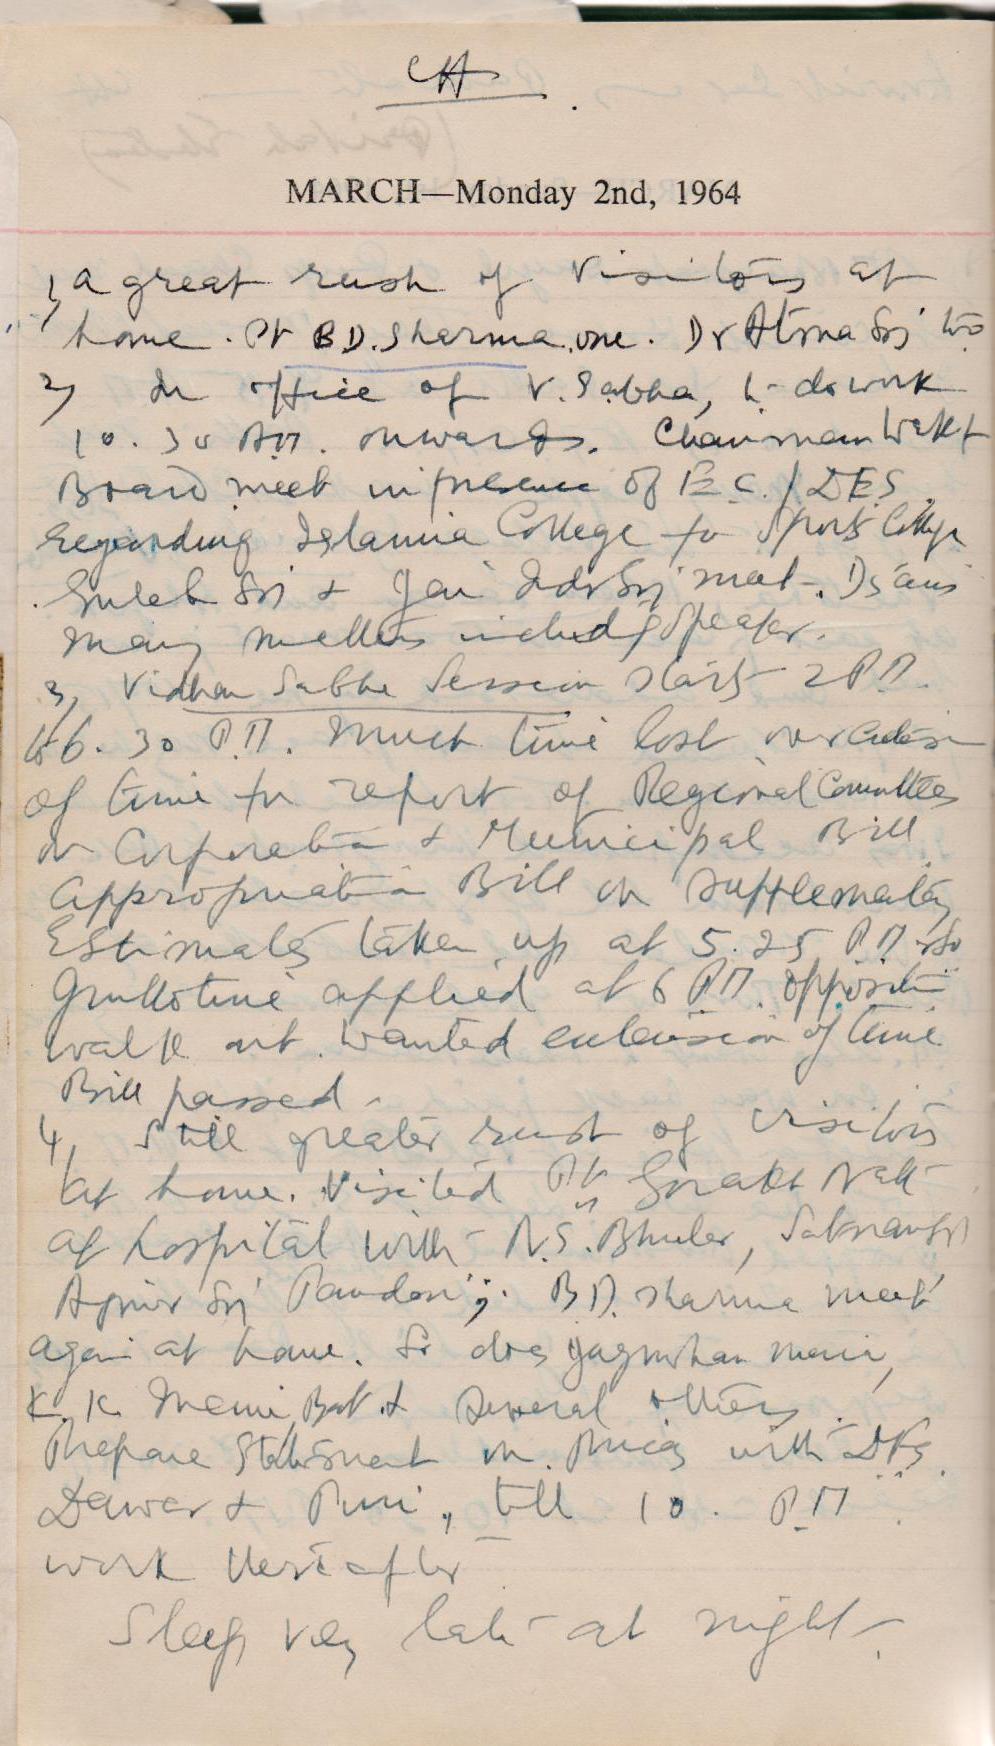 CH
MARCH—Monday 2nd, 1964
1, a great rush of visitors at
home. Pt B.D. Sharma, one. Dr Atma Sij too
2, In office of V. Sabha, to do work
10.30 AM. onwards. Chairman Wakf
Board meet in presence of E.C./DES.
regarding Islamia College for Sports College
Guleb Sij & Jai Indr Sij meet.
many matters includg Speaker.
3, Vidhan Sabha Session starts 2 PM.
to 6.30 P.M. Much time lost over
of time for report of Regional Committee
on Corporation & Municipal Bill
Appropriation Bill on Supplementary
Estimates taken up at 5.25 PM. So
Gullotine applied at 6 PM. Opposition
walk out. Wanted extension of time
Bill passed.
4, Still greater rush of visitors
at home. Visited Pt Gorakh Nath
at hospital with N.S. Bhuler,
Sij B.D. Sharma meet
again at home. So does Jagmohan
K.K. & several others.
Prepare Statement on Prices with DFS.
Dewar & Puri, till 10. PM.
work thereafter
Sleep very late at night.